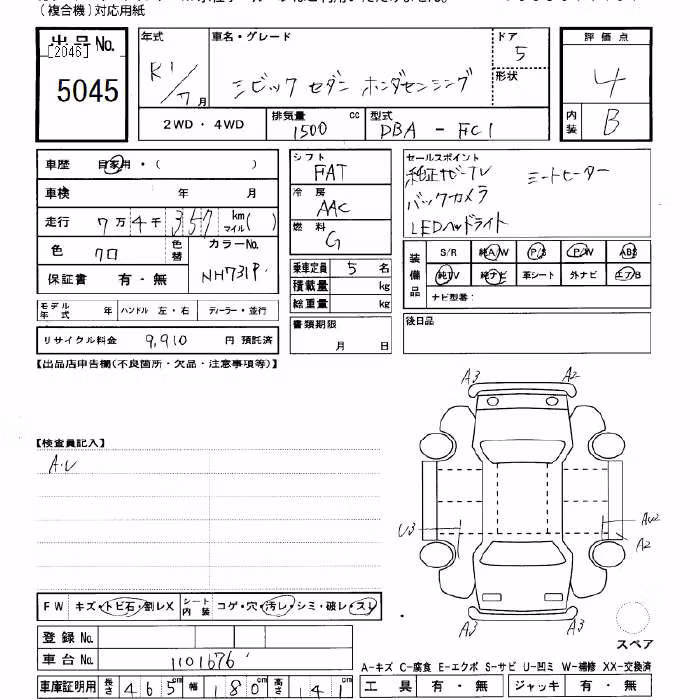 (複合機)対応用紙
出品No.
[2046]
5045
年式
R1/7月
車名・グレード
シビック セダン ホンダセンシング
ドア
5
形状
評価点
4
内装
B
2WD・4WD
排気量
1500 cc
型式
DBA - FC1
車歴
自家用・( )
車検 年 月
走行 7万4千357 km マイル( )
色
クロ
色替
カラーNo.
NH731P
保証書 有・無
シフト
FAT
冷房
AAC
燃料
G
乗車定員 5 名
積載量 kg
総重量 kg
セールスポイント
純正ナビTV シートヒーター
バックカメラ
LEDヘッドライト
装備品
S/R 純A/W P/S P/W ABS
純TV 純ナビ 革シート 外ナビ エアB
ナビ型番:
モデル年式 年 ハンドル 左・右 ディーラー・並行
リサイクル料金 9,910 円 預託済
書類期限
月 日
後日品
【出品店申告欄(不良箇所・欠品・注意事項等)】
A3 A2
【検査員記入】
A.U
U3 AU2
A2
A3 A3
FW キズ・トビ石・割レX シート内装 コゲ・穴・汚レ・シミ・破レ・スレ
登録No.
車台No. 1101676
車庫証明用 長さ 465 cm 幅 180 cm 高さ 141
スペア
A-キズ C-腐食 E-エクボ S-サビ U-凹ミ W-補修 XX-交換済
工具 有・無 ジャッキ 有・無